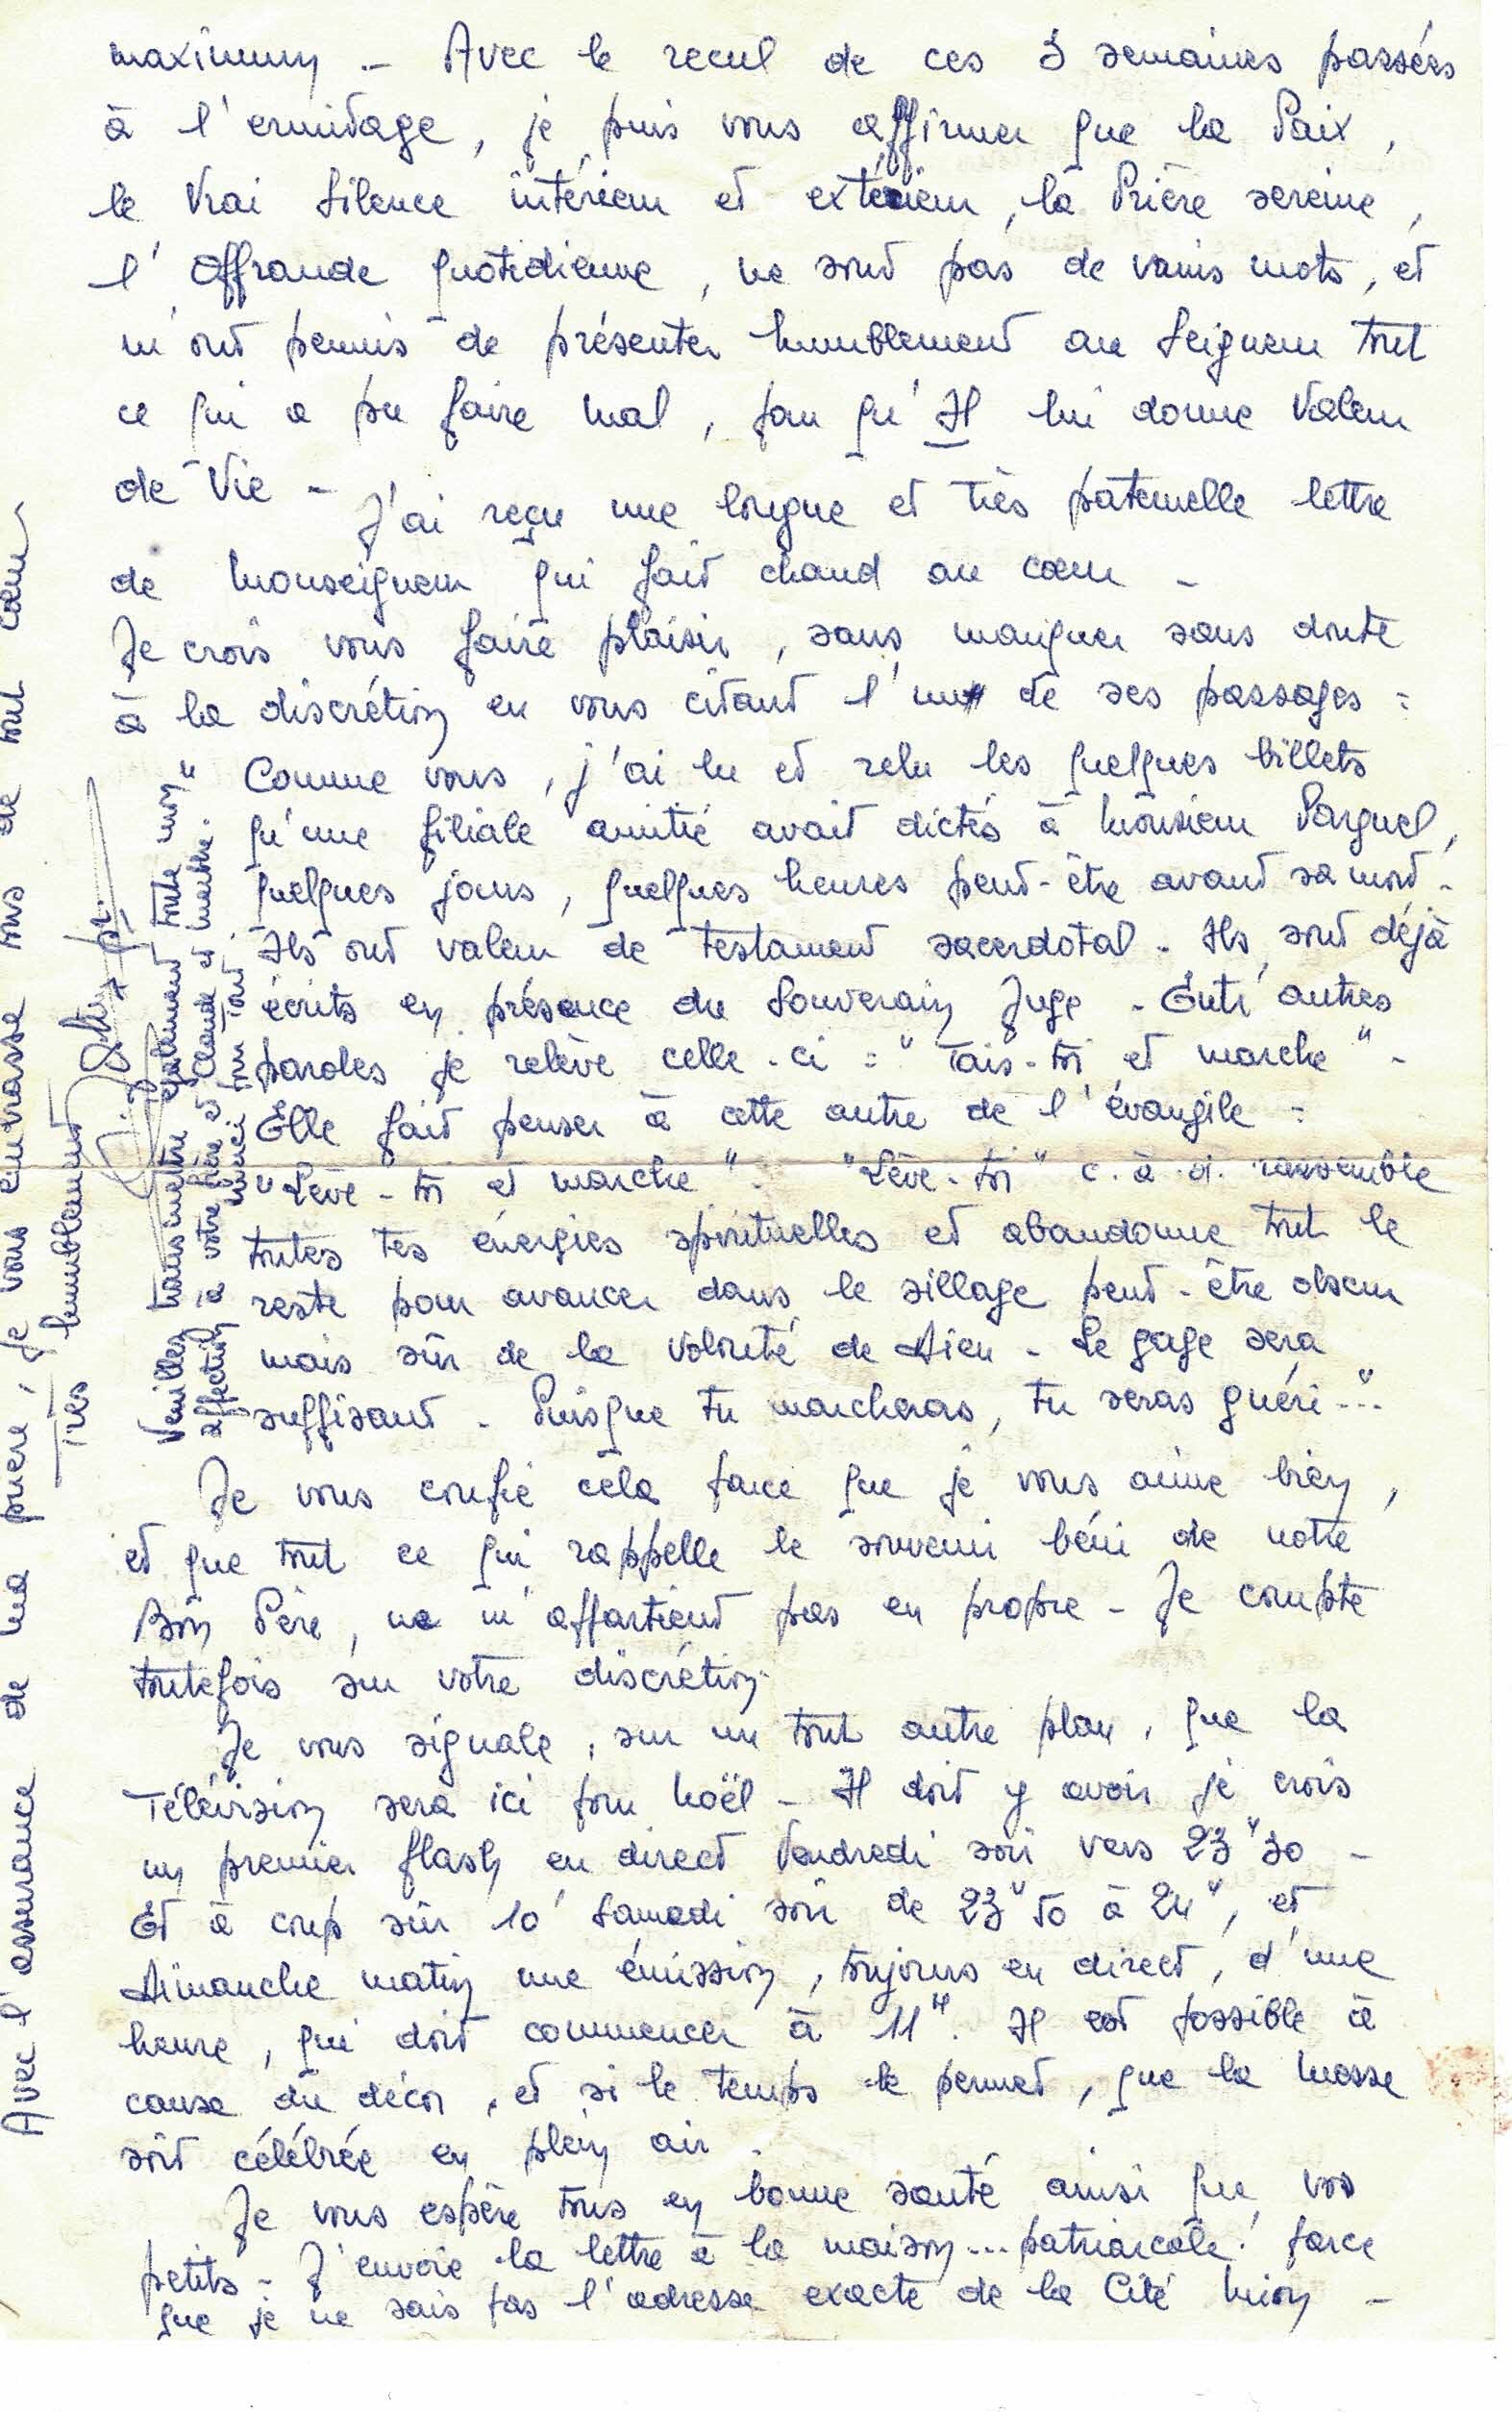 maximum - Avec le recul de ces 3 semaines passées
à l'ermitage, je puis vous affirmer que la Paix,
le Vrai Silence intérieur et extérieur, la Prière sereine,
l'Offrande quotidienne, ne sont pas de vains mots, et
m'ont permis de présenter humblement au Seigneur tout
ce qui a pu faire mal, pour qu'Il lui donne Valeur
de Vie - J'ai reçu une longue et très paternelle lettre
de Monseigneur qui fait chaud au cœur -
Je crois vous faire plaisir, sans manquer sans doute
à la discrétion en vous citant l'un de ses passages :
" Comme vous, j'ai lu et relu les quelques billets
qu'une filiale amitié avait dictés à Monsieur Parguel,
quelques jours, quelques heures peut-être avant sa mort -
Ils ont valeur de testament sacerdotal - Ils sont déjà
écrits en présence du Souverain Juge - Entr'autres
paroles je relève celle-ci : " Tais-toi et marche " -
Elle fait penser à cette autre de l'évangile :
" Lève-toi et marche ". " Lève-toi " c.à.d. rassemble
toutes tes énergies spirituelles et abandonne tout le
reste pour avancer dans le sillage peut-être obscur
mais sûr de la Volonté de Dieu - Le gage sera
suffisant - Puisque tu marcheras, tu seras guéri..."
Je vous confie cela parce que je vous aime bien,
et que tout ce qui rappelle le souvenir béni de notre
Bon Père, ne m'appartient pas en propre - Je compte
toutefois sur votre discrétion.
Je vous signale, sur un tout autre plan, que la
Télévision sera ici pour Noël - Il doit y avoir je crois
un premier flash en direct Vendredi soir vers 23H30 -
Et à coup sûr 10' Samedi soir de 23H50 à 24H, et
Dimanche matin une émission, toujours en direct, d'une
heure, qui doit commencer à 11H. Il est possible à
cause du décor, et si le temps le permet, que la Messe
soit célébrée en plein air.
Je vous espère tous en bonne santé ainsi que vos
petits - J'envoie la lettre à la maison... patriarcale ! parce
que je ne sais pas l'adresse exacte de la Cité Mion -
Avec l'assurance de ma prière, je vous embrasse tous de tout cœur
Très humblement
Veuillez transmettre également toute mon
affection à votre Père et Claude et
merci pour tout.